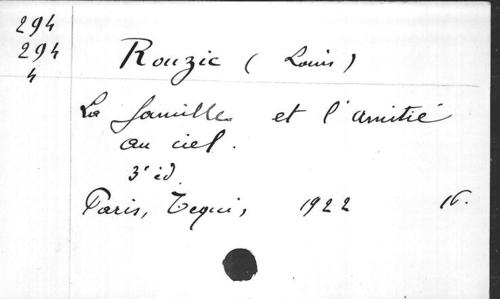 294
294
4
Rouzic (Louis)
La famille et l'amitié
au ciel.
3e éd.
Paris, Tequi, 1922 16.